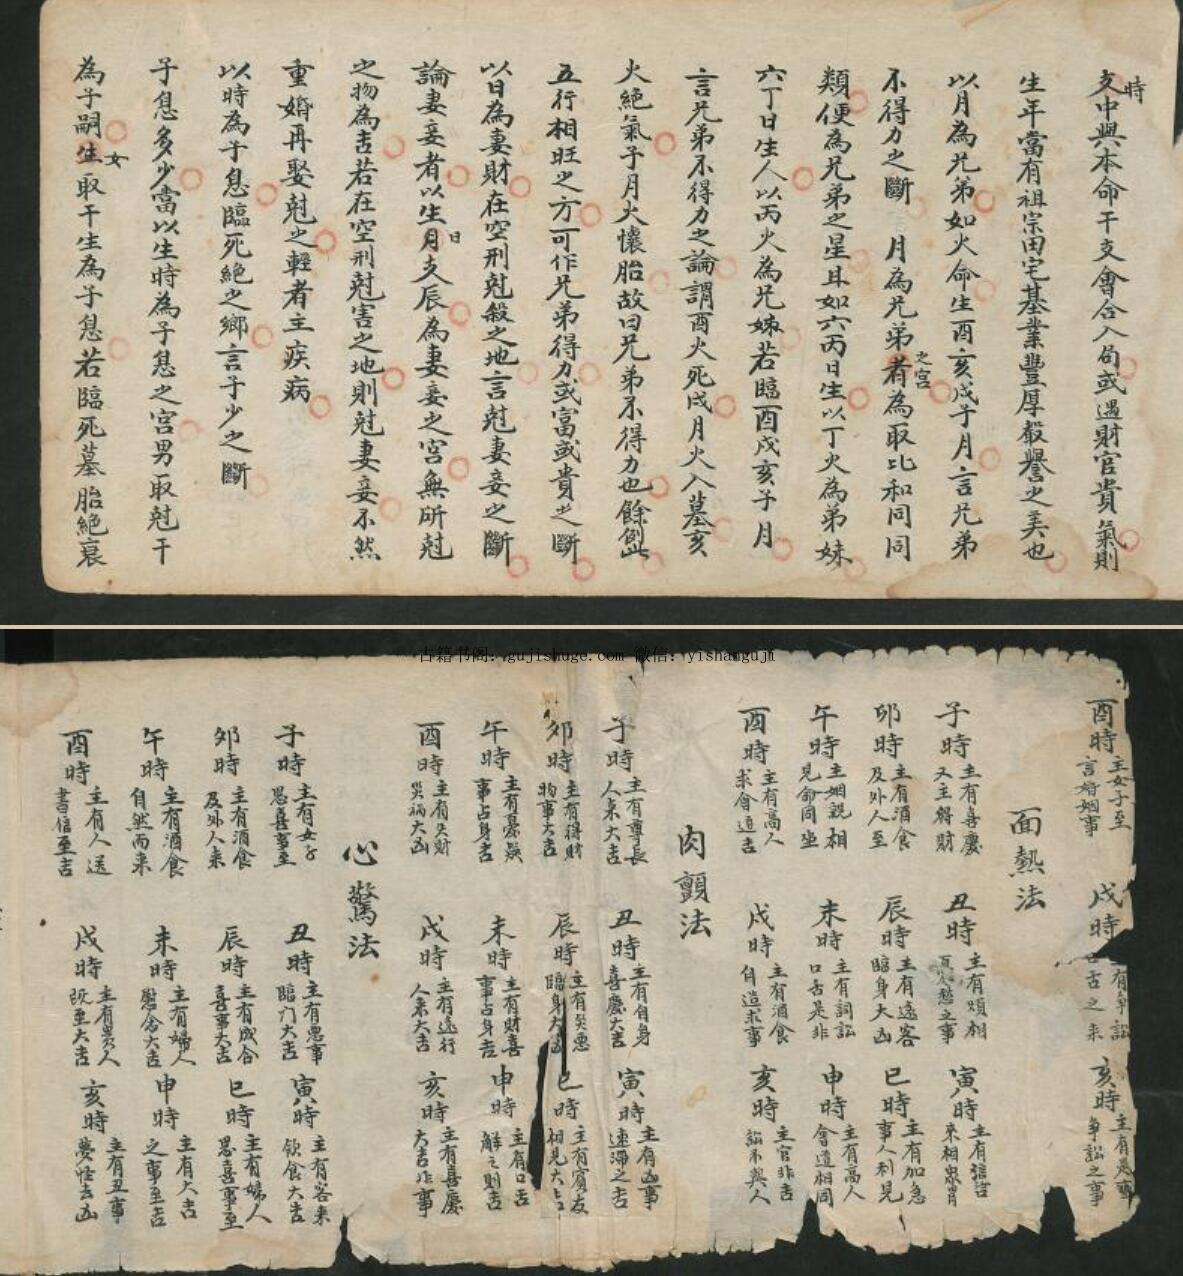 時
支中與本命干支會合入局或遇財官貴氣則
生年當有祖宗田宅基業豐厚聲譽之美也
以月為兄弟如火命生酉亥戌子月言兄弟
不得力之斷　月為兄弟之宮者為取比和同同
類便為兄弟之星且如六丙日生以丁火為弟妹
六丁日生人以丙火為兄姊若臨酉戌亥子月
言兄弟不得力之論謂酉火死戌月火入墓亥
火絕氣子月火懷胎故曰兄弟不得力也餘倣
五行相旺之方可作兄弟得力或富或貴之斷
以日為妻財在空刑尅殺之地言尅妻妾之斷
論妻妾者以生月日支辰為妻妾之宮無所尅
之物為吉若在空刑尅害之地則尅妻妾不然
重婚再娶尅之輕者主疾病
以時為子息臨死絕之鄉言子少之斷
子息多少當以生時為子息之宮男取尅干
為子嗣生女取干生為子息若臨死墓胎絕衰
古籍书阁：gujishuge.com 微信：yishanguji
酉時 主女子至言婚姻事
戌時 主有爭訟口舌之來
亥時 爭訟之事
面熱法
子時 主有喜慶又主得財
丑時 主有煩相愁之事
寅時 主有信言來相
卯時 主有酒食及外人至
辰時 主有遠客臨身大凶
巳時 主有加急事人利見
午時 主姻親相見命同坐
未時 主有詞訟口舌是非
申時 主有高人會遇相同
酉時 主有高人求會迫吉
戌時 主有酒食自造求事
亥時 主官非吉訟不與人
肉顫法
子時 主有尊長人來大吉
丑時 主有自身喜慶大吉
寅時 主有凶事速禍之吉
卯時 主有得財物事大吉
辰時 主有災惡臨身大凶
巳時 主有賓友相見大吉
午時 主有憂疑事占身吉
未時 主有財喜事占身吉
申時 主有口舌解之則吉
酉時 主有失財災病大凶
戌時 主有遠行人來大吉
亥時 主有喜慶大吉非事
心驚法
子時 主有女子恩喜事至
丑時 主有惡事臨門大吉
寅時 主有客來飲食大吉
卯時 主有酒食及外人來
辰時 主有成合喜事大吉
巳時 主有婦人恩喜事至
午時 主有酒食自然而來
未時 主有婦人大吉
申時 主有大吉之事至吉
酉時 主有人送書信至吉
戌時 主有貴人至大吉
亥時 主有丑事夢怪去凶